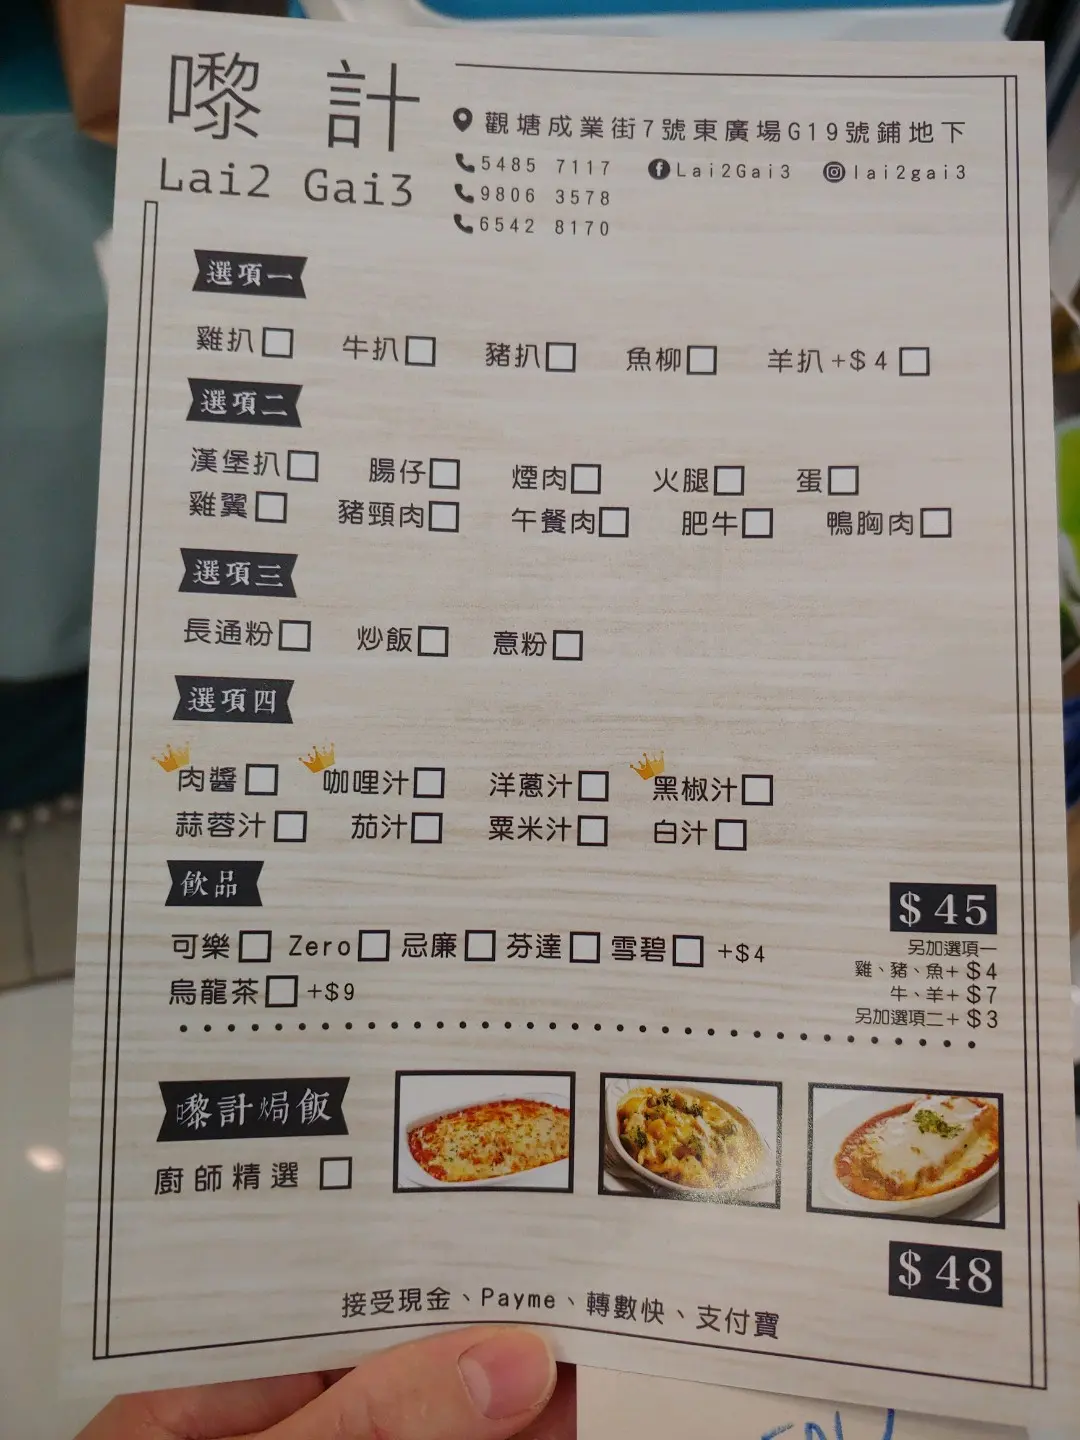 嚟計
Lai2 Gai3
觀塘成業街7號東廣場G19號鋪地下
5485 7117 Lai2Gai3 lai2gai3
9806 3578
6542 8170
選項一
雞扒 牛扒 豬扒 魚柳 羊扒+$4
選項二
漢堡扒 腸仔 煙肉 火腿 蛋
雞翼 豬頸肉 午餐肉 肥牛 鴨胸肉
選項三
長通粉 炒飯 意粉
選項四
肉醬 咖哩汁 洋蔥汁 黑椒汁
蒜蓉汁 茄汁 粟米汁 白汁
飲品
可樂 Zero 忌廉 芬達 雪碧 +$4
烏龍茶 +$9
$45
另加選項一
雞、豬、魚+$4
牛、羊+$7
另加選項二+$3
嚟計焗飯
廚師精選
$48
接受現金、Payme、轉數快、支付寶